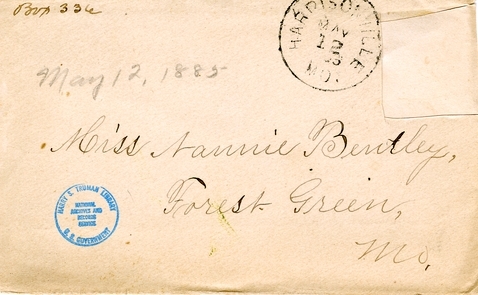 Box 336
HARRISONVILLE
MAY
MO.
May 12, 1885
Miss Nannie Bentley,
Forest Green,
Mo.
HARRY S. TRUMAN LIBRARY
NATIONAL
ARCHIVES AND
RECORDS
SERVICE
U. S. GOVERNMENT